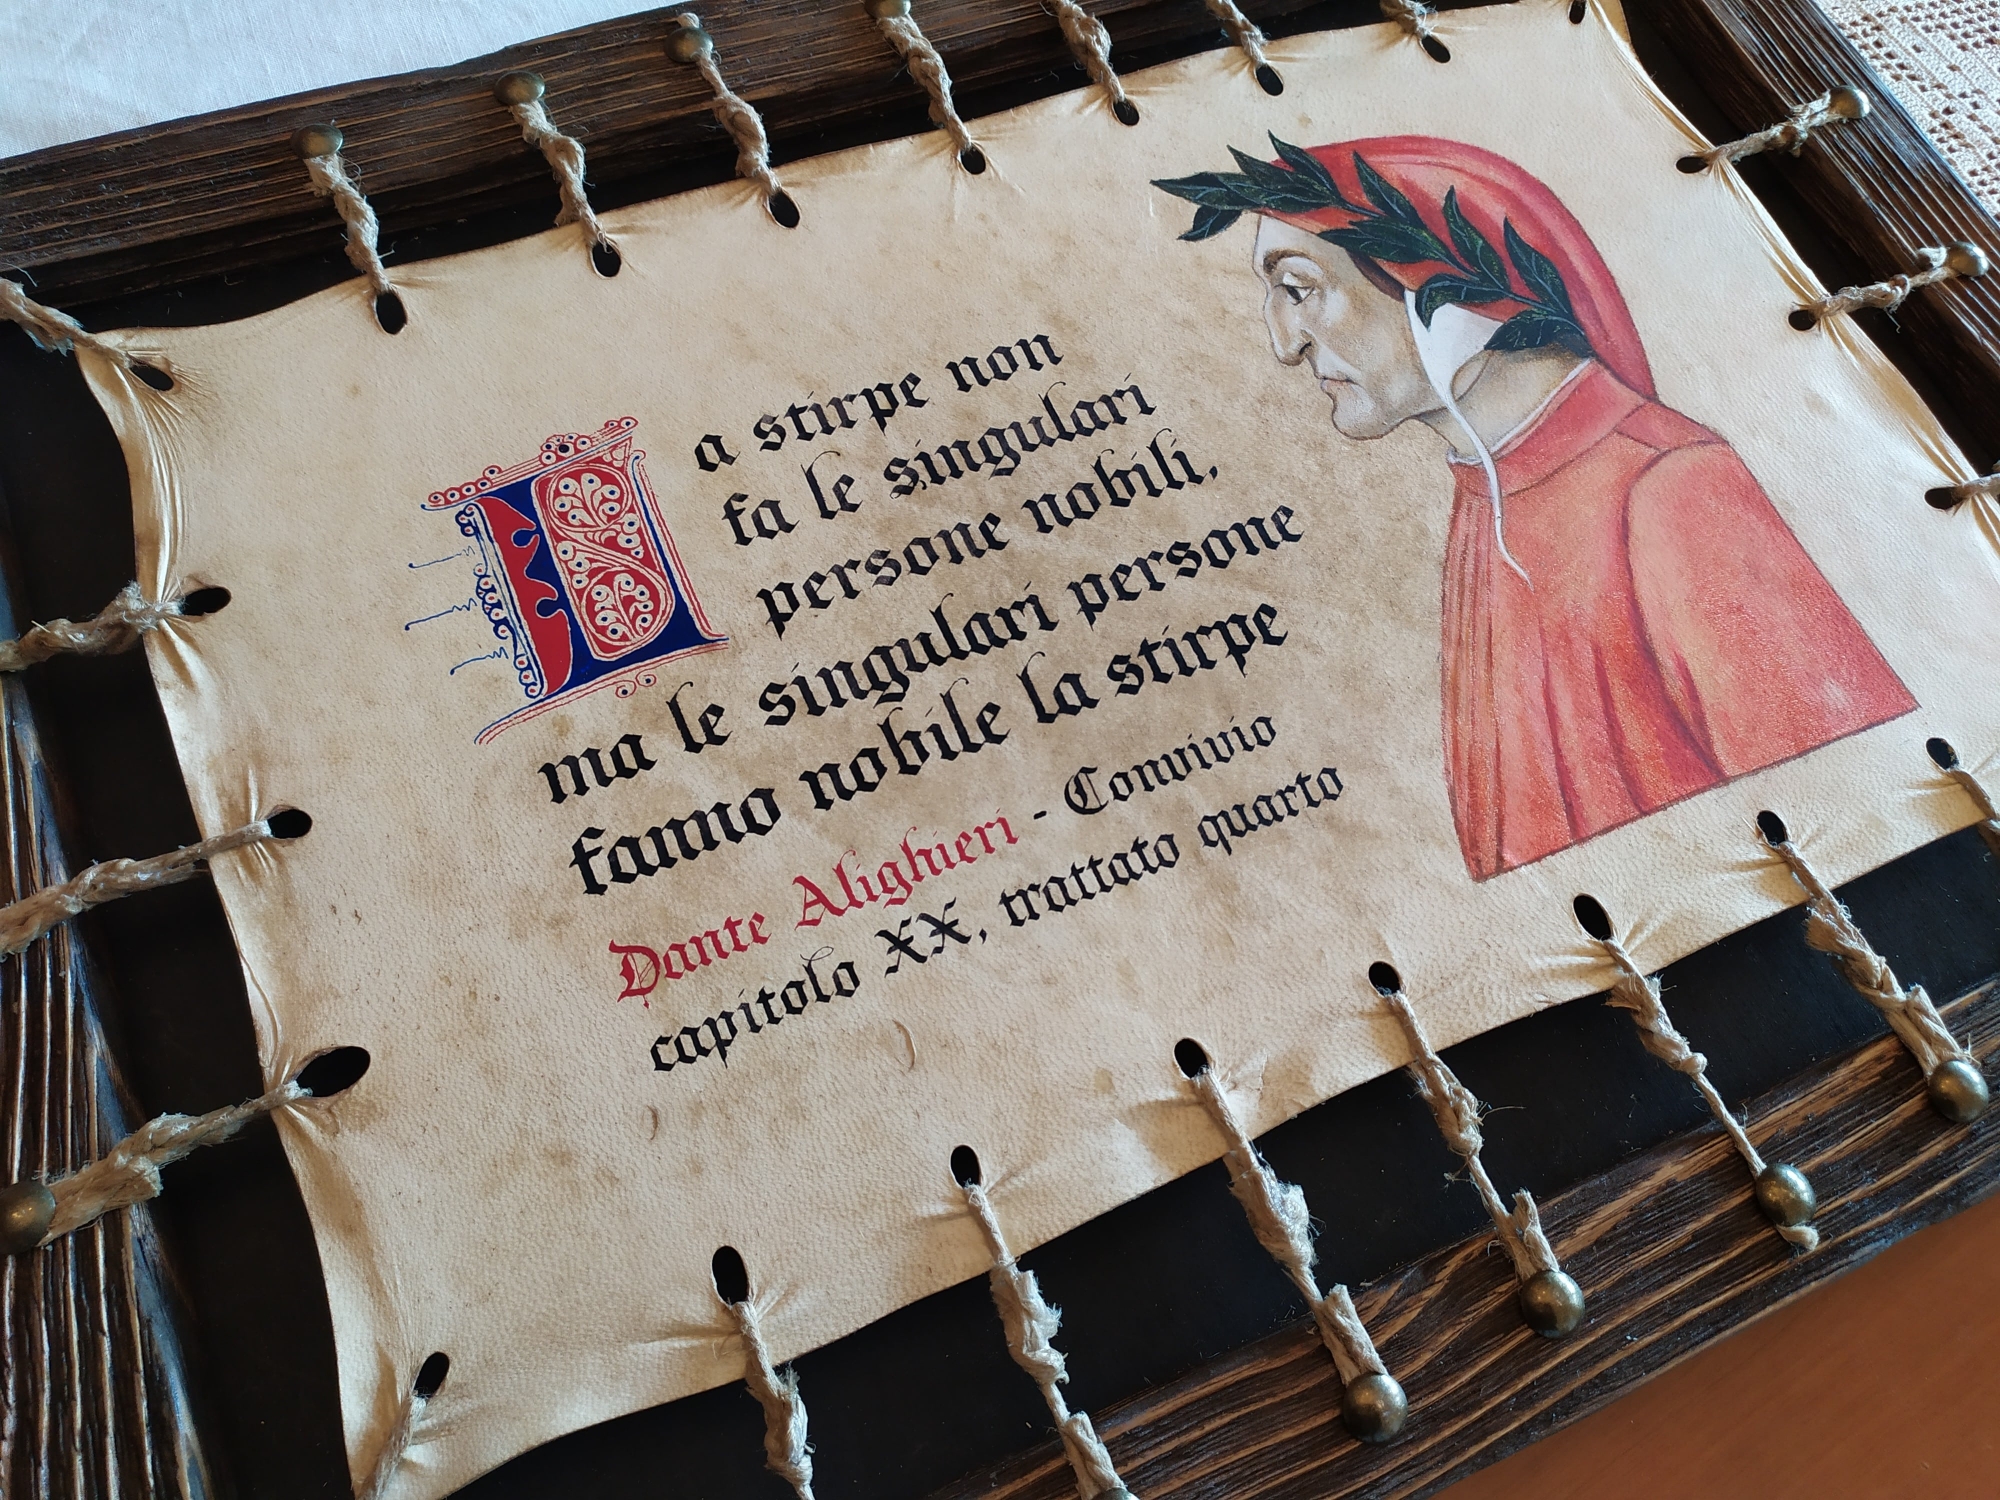 La stirpe non
fa le singulari
persone nobili,
ma le singulari persone
fanno nobile la stirpe
Dante Alighieri - Convivio
capitolo XX, trattato quarto